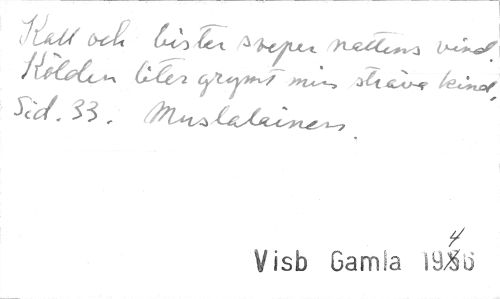 Kall och bister sveper nattens vind.
Kölden biter grymt min sträva kind.
Sid. 33. Mustalainen.
Visb Gamla 1946